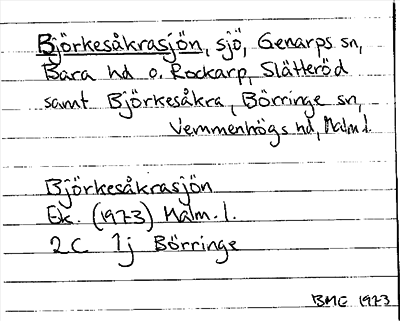 Björkesåkrasjön, sjö, Genarps sn,
Bara hd o. Rockarp, Slätteröd
samt Björkesåkra, Börringe sn,
Vemmenhögs hd, Malm.l.
Björkesåkrasjön
Ek. (1973) Malm.l.
2C 1j Börringe
BME 1973